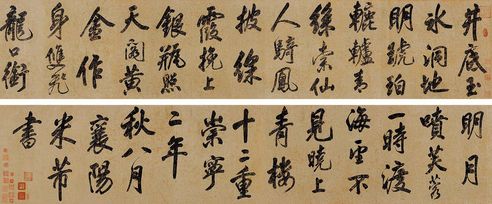 井底玉
冰洞地
明琥珀
轆轤青
絲索仙
人騎鳳
披綵
霞挽上
銀瓶照
天閣黃
金作
身雙飛
龍口銜
明月
噴芙蓉
一時渡
海雲不
見曉上
青樓
十二重
崇寧
二年
秋八月
襄陽
米芾
書